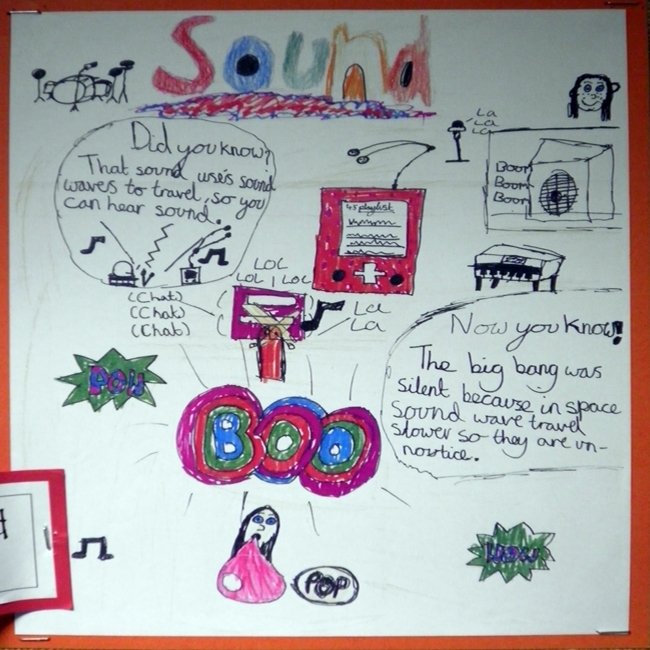 Sound
La
La
La
Did you know?
That sound uses sound
waves to travel, so you
can hear sound.
Boom
Boom
Boom
LOL
LOL LOL
(Chat)
(Chat)
(Chat)
La
La
Now you know!
The big bang was
silent because in space
sound wave travel
slower so they are un-
nowtice.
POW
BOO
POP